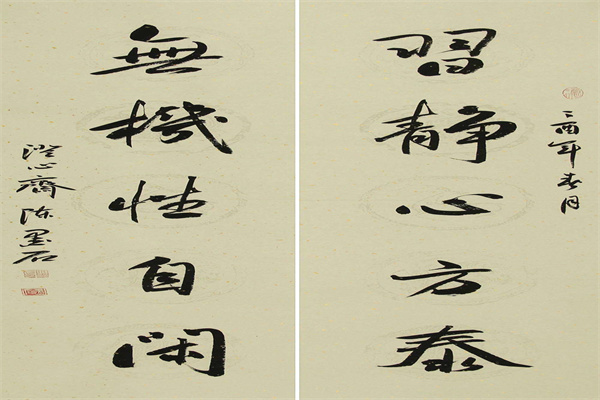 酉年春月
習静心方泰
無機性自閑
澄心齋陈墨石